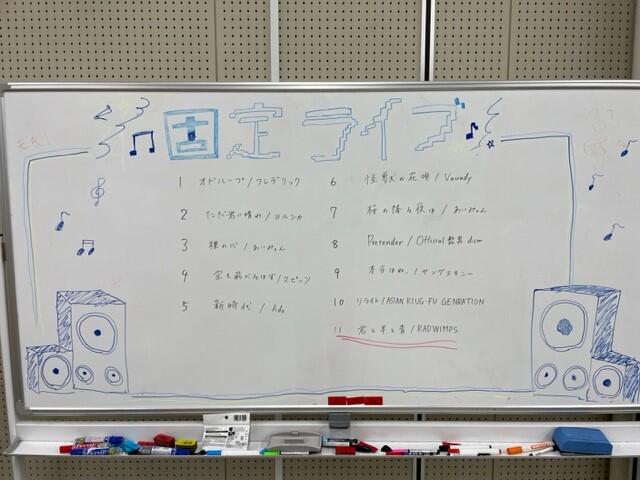 固定ライブ
1 オドループ/フレデリック
2 ただ君に晴れ/ヨルシカ
3 裸の心/あいみょん
4 空も飛べるはず/スピッツ
5 新時代/Ado
6 怪獣の花唄/Vaundy
7 桜の降る夜は/あいみょん
8 Pretender/Official髭男dism
9 本当はね、/ヤングスキニー
10 リライト/ASIAN KUG-FU GENRATION
11 君と羊と青/RADWIMPS